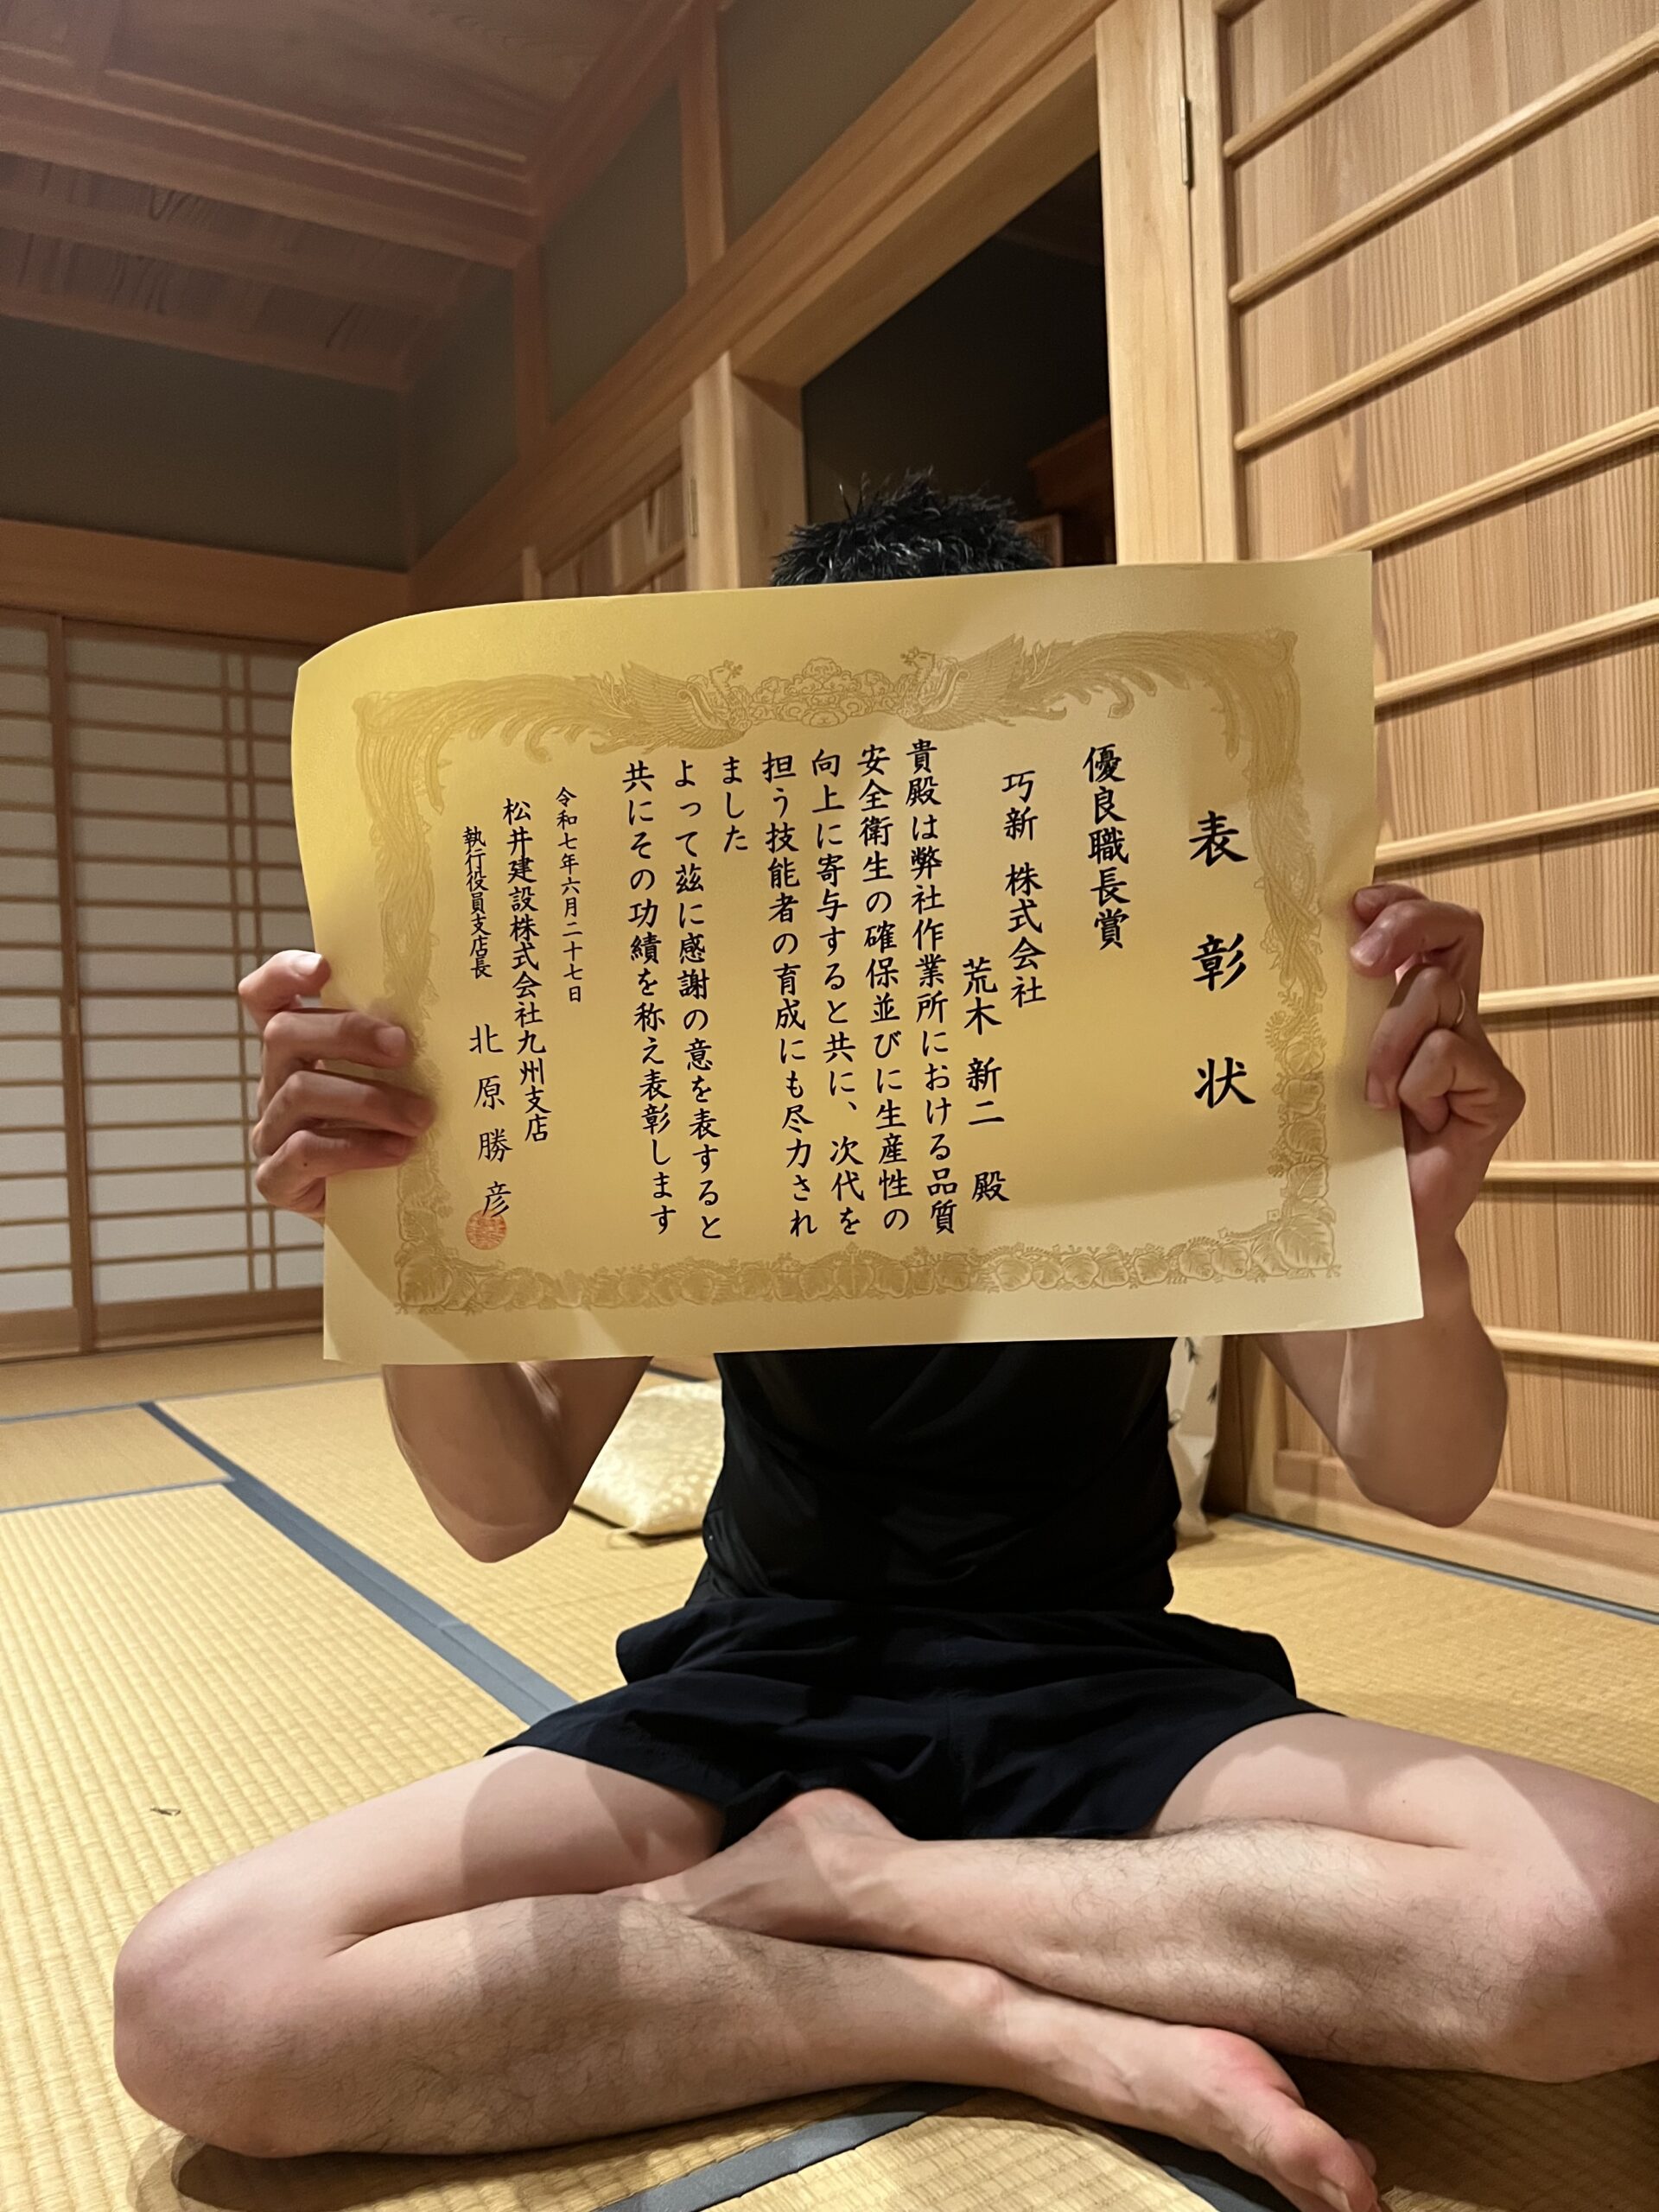 表彰状
優良職長賞
巧新 株式会社
荒木 新二 殿
貴殿は弊社作業所における品質
安全衛生の確保並びに生産性の
向上に寄与すると共に、次代を
担う技能者の育成にも尽力され
ました
よって茲に感謝の意を表すると
共にその功績を称え表彰します
令和七年六月二十七日
松井建設株式会社九州支店
執行役員支店長 北原勝彦